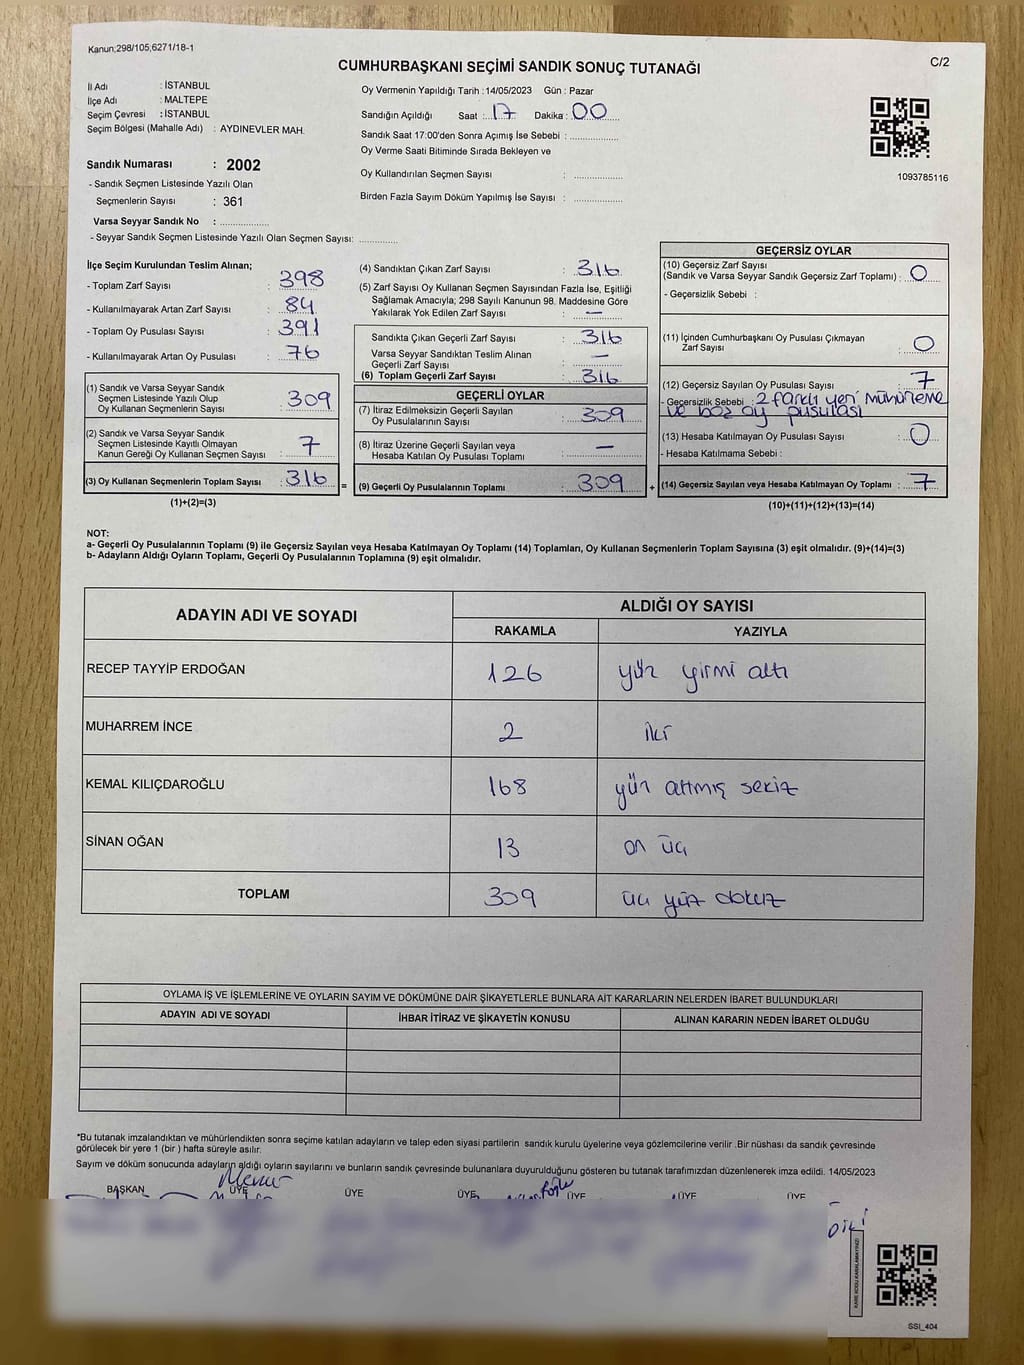 Kanun;298/105;6271/18-1
C/2
CUMHURBAŞKANI SEÇİMİ SANDIK SONUÇ TUTANAĞI
İl Adı : İSTANBUL
İlçe Adı : MALTEPE
Seçim Çevresi : İSTANBUL
Seçim Bölgesi (Mahalle Adı) : AYDINEVLER MAH.
Sandık Numarası : 2002
- Sandık Seçmen Listesinde Yazılı Olan
Seçmenlerin Sayısı : 361
Varsa Seyyar Sandık No : ....................
- Seyyar Sandık Seçmen Listesinde Yazılı Olan Seçmen Sayısı: ..............
Oy Vermenin Yapıldığı Tarih : 14/05/2023 Gün : Pazar
Sandığın Açıldığı Saat : 17 Dakika : 00
Sandık Saat 17:00'den Sonra Açımış İse Sebebi : ....................
Oy Verme Saati Bitiminde Sırada Bekleyen ve
Oy Kullandırılan Seçmen Sayısı : ....................
Birden Fazla Sayım Döküm Yapılmış İse Sayısı : ....................
1093785116
İlçe Seçim Kurulundan Teslim Alınan;
- Toplam Zarf Sayısı : 398
- Kullanılmayarak Artan Zarf Sayısı : 84
- Toplam Oy Pusulası Sayısı : 391
- Kullanılmayarak Artan Oy Pusulası : 76
(1) Sandık ve Varsa Seyyar Sandık
Seçmen Listesinde Yazılı Olup
Oy Kullanan Seçmenlerin Sayısı : 309
(2) Sandık ve Varsa Seyyar Sandık
Seçmen Listesinde Kayıtlı Olmayan
Kanun Gereği Oy Kullanan Seçmen Sayısı : 7
(3) Oy Kullanan Seçmenlerin Toplam Sayısı : 316 =
(1)+(2)=(3)
(4) Sandıktan Çıkan Zarf Sayısı : 316
(5) Zarf Sayısı Oy Kullanan Seçmen Sayısından Fazla İse, Eşitliği
Sağlamak Amacıyla; 298 Sayılı Kanunun 98. Maddesine Göre
Yakılarak Yok Edilen Zarf Sayısı : —
Sandıkta Çıkan Geçerli Zarf Sayısı : 316
Varsa Seyyar Sandıktan Teslim Alınan
Geçerli Zarf Sayısı : —
(6) Toplam Geçerli Zarf Sayısı : 316
GEÇERLİ OYLAR
(7) İtiraz Edilmeksizin Geçerli Sayılan
Oy Pusulalarının Sayısı : 309
(8) İtiraz Üzerine Geçerli Sayılan veya
Hesaba Katılan Oy Pusulası Toplamı : —
(9) Geçerli Oy Pusulalarının Toplamı : 309 +
GEÇERSİZ OYLAR
(10) Geçersiz Zarf Sayısı
(Sandık ve Varsa Seyyar Sandık Geçersiz Zarf Toplamı) : 0
- Geçersizlik Sebebi :
(11) İçinden Cumhurbaşkanı Oy Pusulası Çıkmayan
Zarf Sayısı : 0
(12) Geçersiz Sayılan Oy Pusulası Sayısı : 7
- Geçersizlik Sebebi : 2 farklı yeri mühürleme
ve boz oy pusulası
(13) Hesaba Katılmayan Oy Pusulası Sayısı : 0
- Hesaba Katılmama Sebebi :
(14) Geçersiz Sayılan veya Hesaba Katılmayan Oy Toplamı : 7
(10)+(11)+(12)+(13)=(14)
NOT:
a- Geçerli Oy Pusulalarının Toplamı (9) ile Geçersiz Sayılan veya Hesaba Katılmayan Oy Toplamı (14) Toplamları, Oy Kullanan Seçmenlerin Toplam Sayısına (3) eşit olmalıdır. (9)+(14)=(3)
b- Adayların Aldığı Oyların Toplamı, Geçerli Oy Pusulalarının Toplamına (9) eşit olmalıdır.
ADAYIN ADI VE SOYADI
ALDIĞI OY SAYISI
RAKAMLA YAZIYLA
RECEP TAYYİP ERDOĞAN 126 yüz yirmi altı
MUHARREM İNCE 2 iki
KEMAL KILIÇDAROĞLU 168 yüz altmış sekiz
SİNAN OĞAN 13 on üç
TOPLAM 309 üç yüz dokuz
OYLAMA İŞ VE İŞLEMLERİNE VE OYLARIN SAYIM VE DÖKÜMÜNE DAİR ŞİKAYETLERLE BUNLARA AİT KARARLARIN NELERDEN İBARET BULUNDUKLARI
ADAYIN ADI VE SOYADI İHBAR İTİRAZ VE ŞİKAYETİN KONUSU ALINAN KARARIN NEDEN İBARET OLDUĞU
*Bu tutanak imzalandıktan ve mühürlendikten sonra seçime katılan adayların ve talep eden siyasi partilerin sandık kurulu üyelerine veya gözlemcilerine verilir .Bir nüshası da sandık çevresinde
görülecek bir yere 1 (bir ) hafta süreyle asılır.
Sayım ve döküm sonucunda adayların aldığı oyların sayılarını ve bunların sandık çevresinde bulunanlara duyurulduğunu gösteren bu tutanak tarafımızdan düzenlenerek imza edildi. 14/05/2023
BAŞKAN ÜYE ÜYE ÜYE ÜYE ÜYE ÜYE
SSI_404